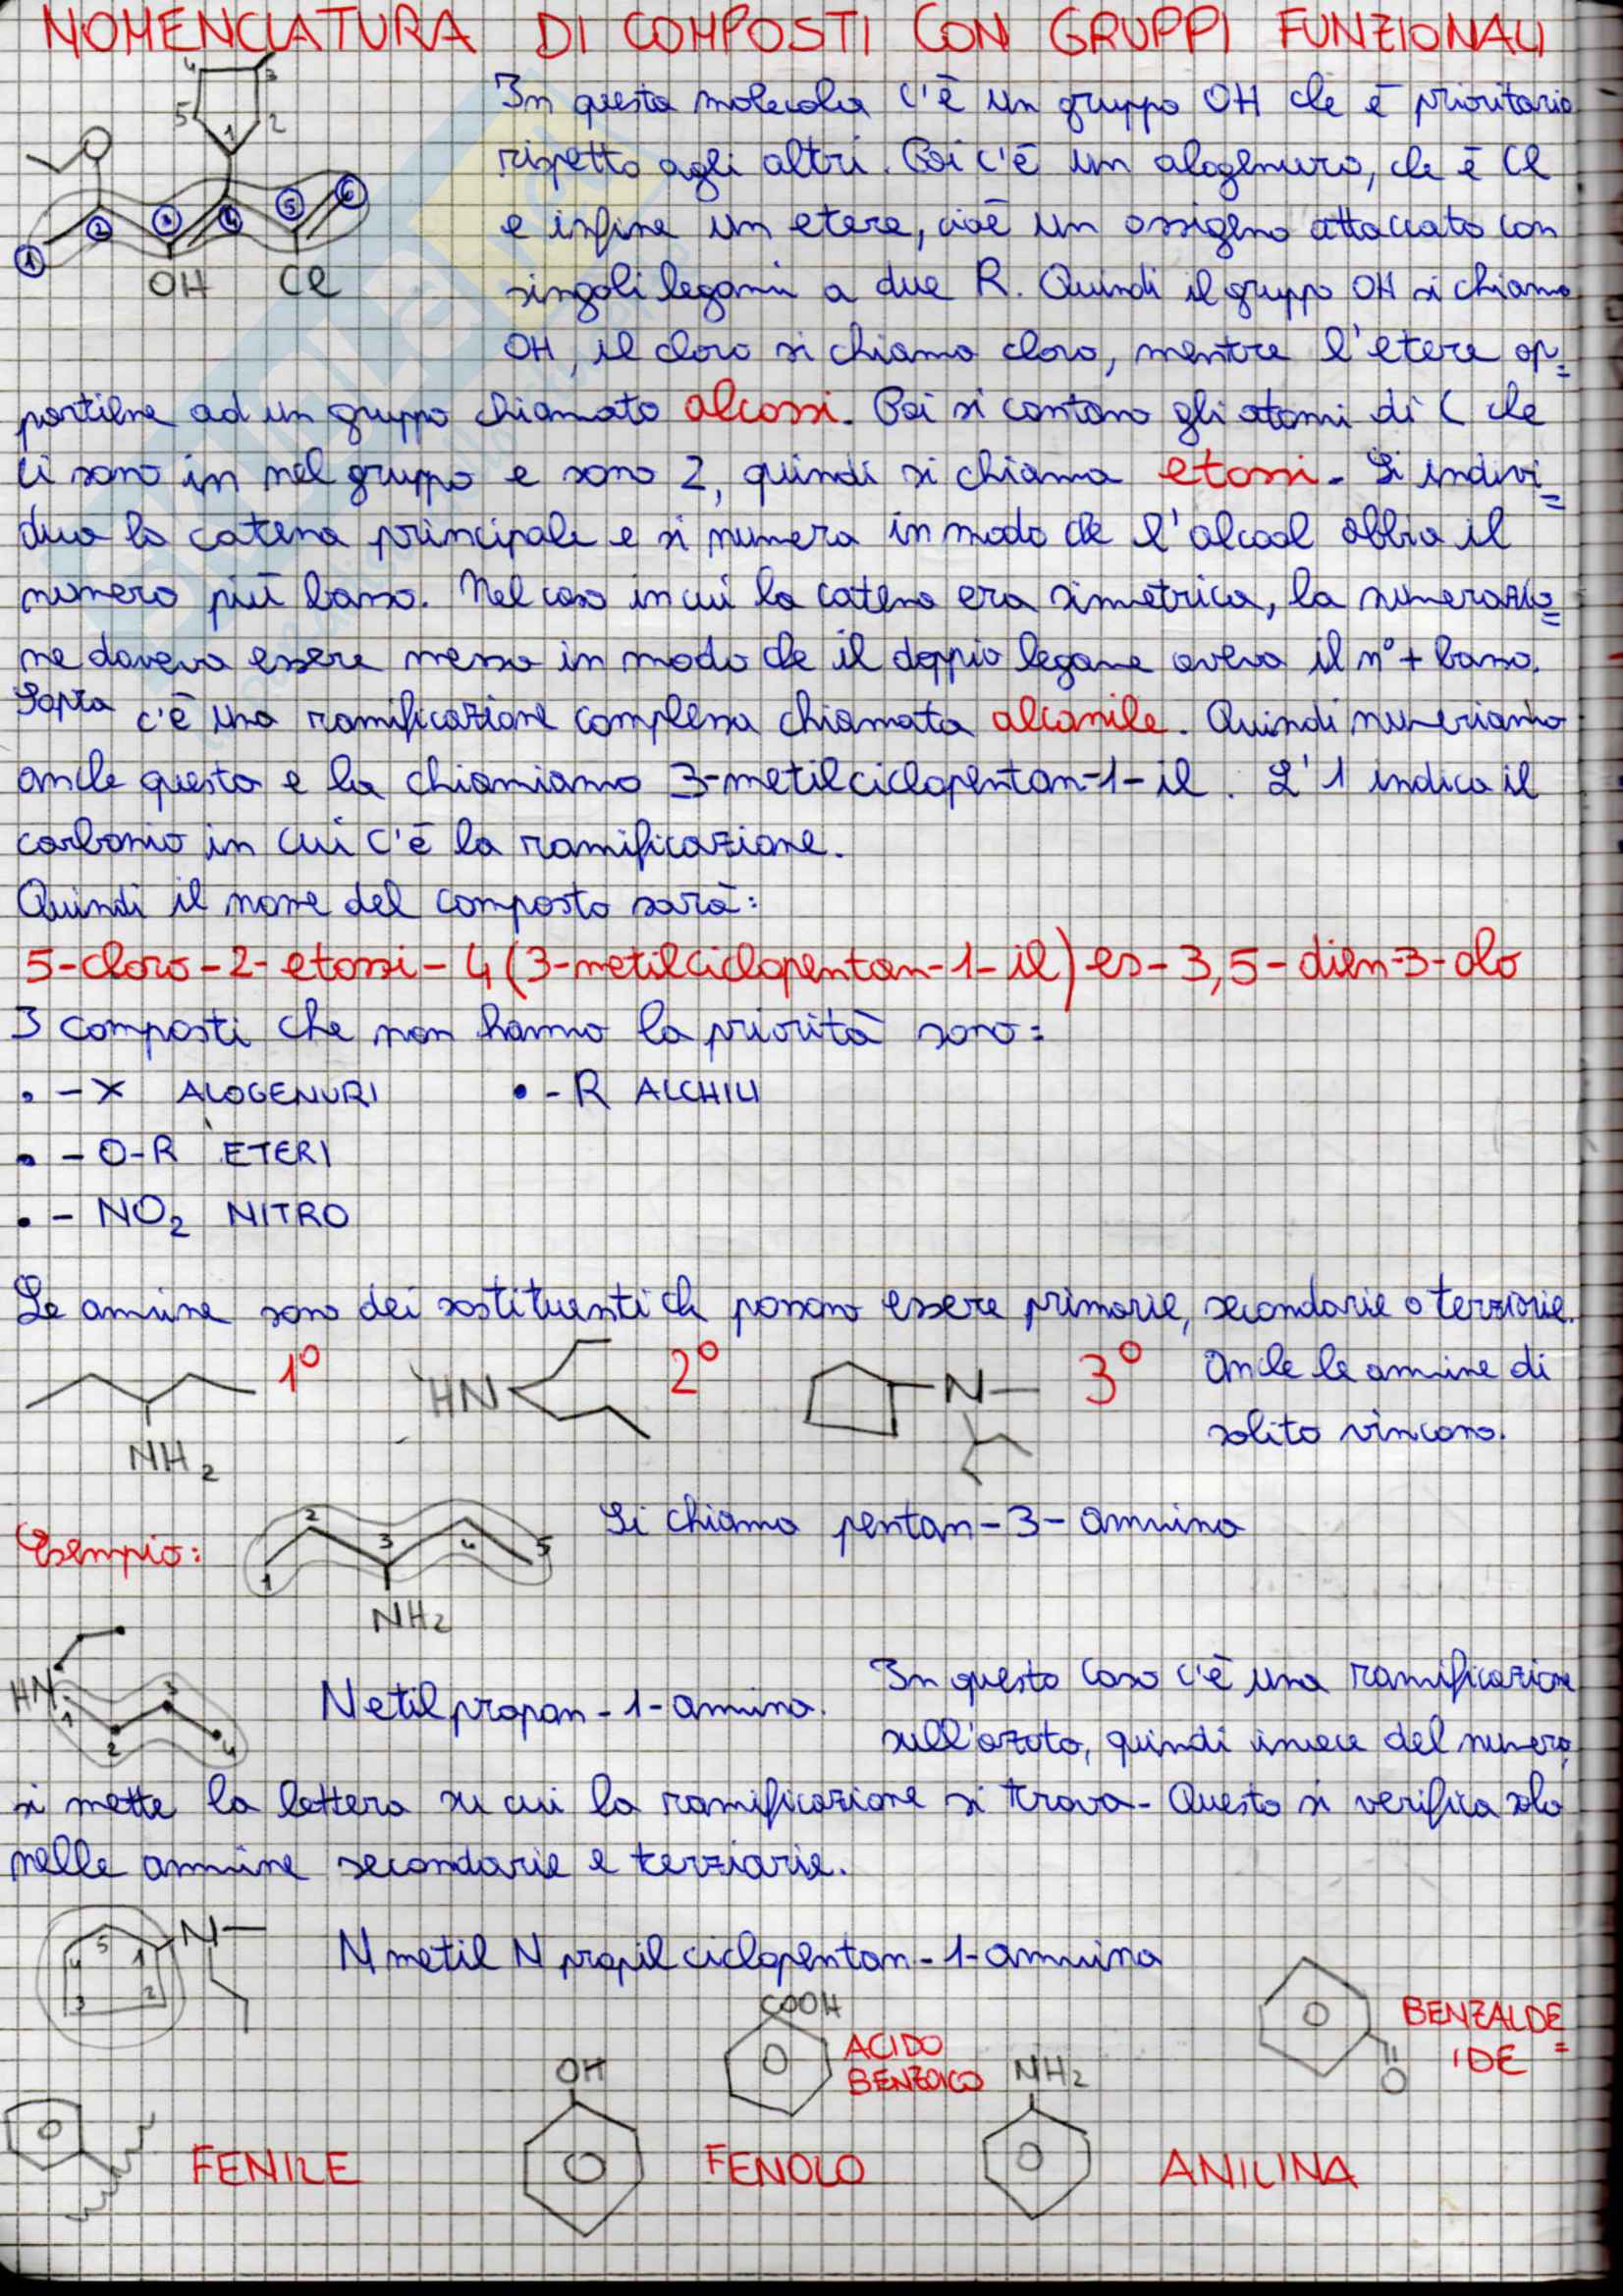 NOMENCLATURA DI COMPOSTI CON GRUPPI FUNZIONALI
4 3
5 2
1
O
1 2 3 4 5 6
OH Cl
In questa molecola c'è un gruppo OH che è prioritario
rispetto agli altri. Poi c'è un alogenuro, che è Cl
e infine un etere, cioè un ossigeno attaccato con
singoli legami a due R. Quindi il gruppo OH si chiama
OH, il cloro si chiama cloro, mentre l'etere ap=
partiene ad un gruppo chiamato alcossi. Poi si contano gli atomi di C che
ci sono in nel gruppo e sono 2, quindi si chiama etossi. Si indivi=
dua la catena principale e si numera in modo che l'alcool abbia il
numero più basso. Nel caso in cui la catena era simetrica, la numerazio=
ne doveva essere messa in modo che il doppio legame aveva il n° + basso.
Sopra c'è una ramificazione complessa chiamata alcanile. Quindi numeriamo
anche questa e la chiamiamo 3-metilciclopentan-1-il. L'1 indica il
carbonio in cui c'è la ramificazione.
Quindi il nome del composto sarà:
5-cloro-2-etossi-4(3-metilciclopentan-1-il)es-3,5-dien-3-olo
3 composti che non hanno la priorità sono:
• -X ALOGENURI • -R ALCHILI
• -O-R ETERI
• -NO2 NITRO
Le amine sono dei sostituenti ch possono essere primarie, secondarie o terziarie.
1° HN 2° N 3° Anche le amine di
NH2 solito vincono.
Esempio: 1 2 3 4 5 Si chiama pentan-3-ammina
NH2
HN 1 2 3 4 N etil propan-1-ammina. In questo caso c'è una ramificazione
sull'azoto, quindi invece del numero,
si mette la lettera su cui la ramificazione si trova. Questo si verifica solo
nelle ammine secondarie e terziarie.
5 4 1 3 2 N N metil N propil ciclopentan-1-ammina
COOH ACIDO
BENZOICO
BENZALDE=
IDE
O
OH NH2
FENILE FENOLO ANILINA